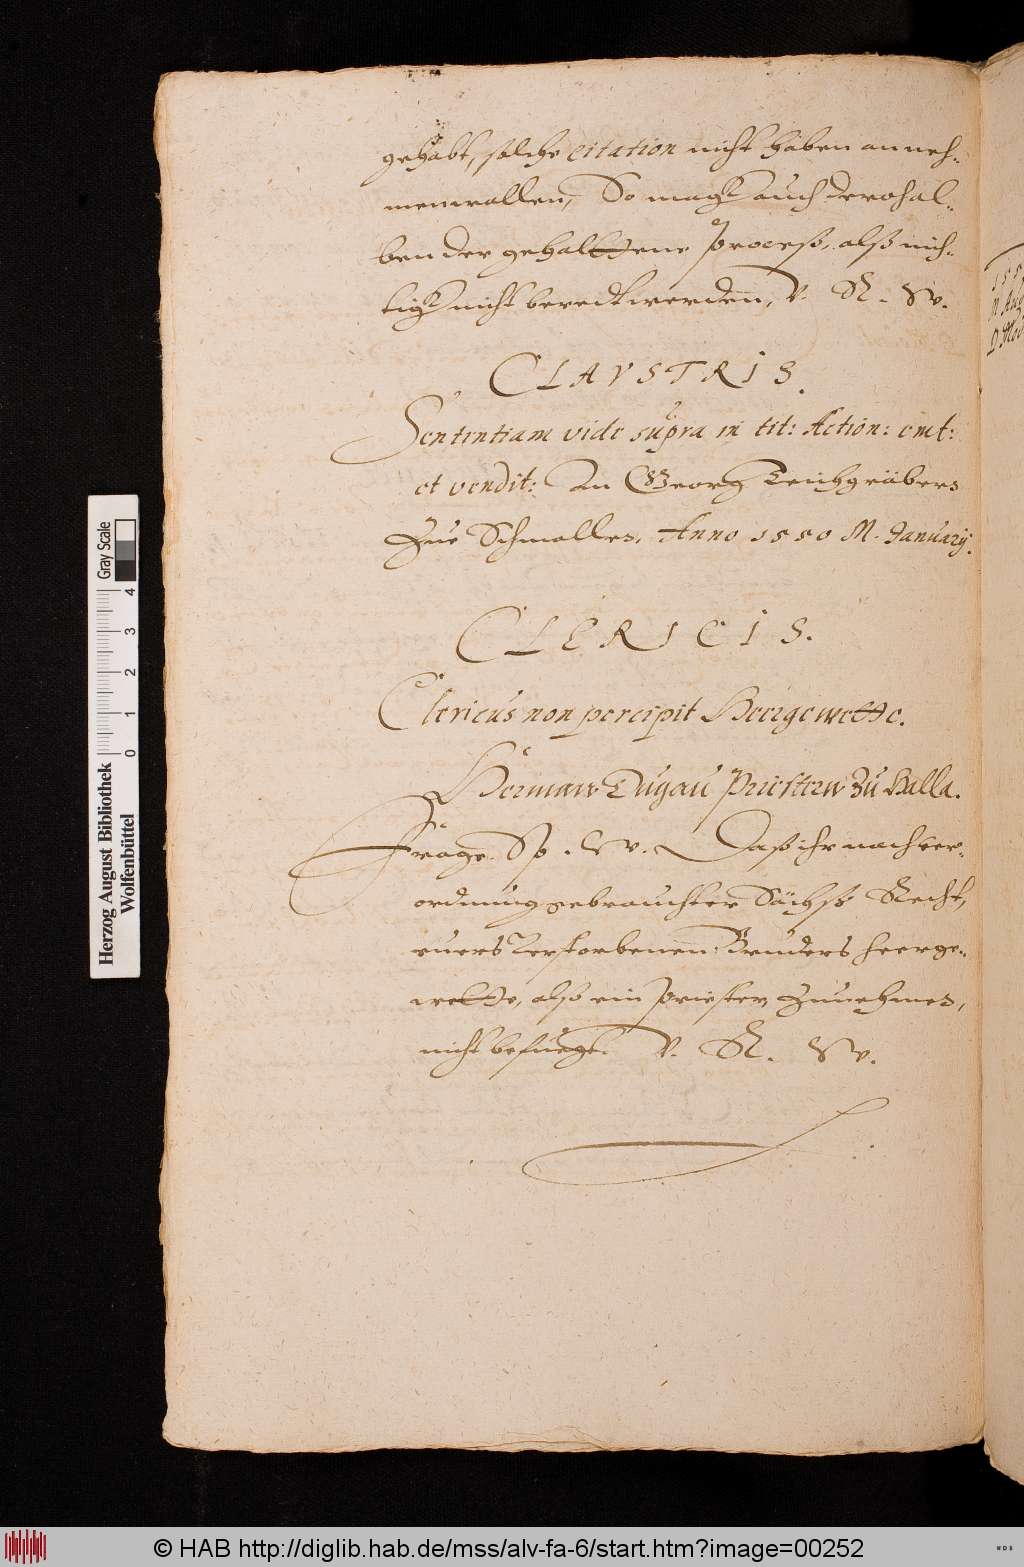 gehabt, solche citation nicht haben anneh-
men wollen, So magk auch derohal-
ben der gehalttene process, alß nich-
tigk nicht beredt werden, V. R. W.
CLAVSTRIS.
Sententiam vide supra in tit: Action: emt:
et vendit: An Georg Teichgräbers
zue Schmolles. Anno 1550 M. January.
CLERICIS.
Clericus non percipit Heergewette.
Herman Dugau Priestern zu Halla.
Frage. Sp. W. Daß ihr nach ver-
ordnung gebrauchter Sächß Recht,
euers verstorbenen Bruders heerge-
wette, alß ein priester zunehmen,
nicht befuegt. V. R. W.
155
M Aug
D Mod
Herzog August Bibliothek
Wolfenbüttel
Gray Scale
0 1 2 3 4
© HAB http://diglib.hab.de/mss/alv-fa-6/start.htm?image=00252
WDB